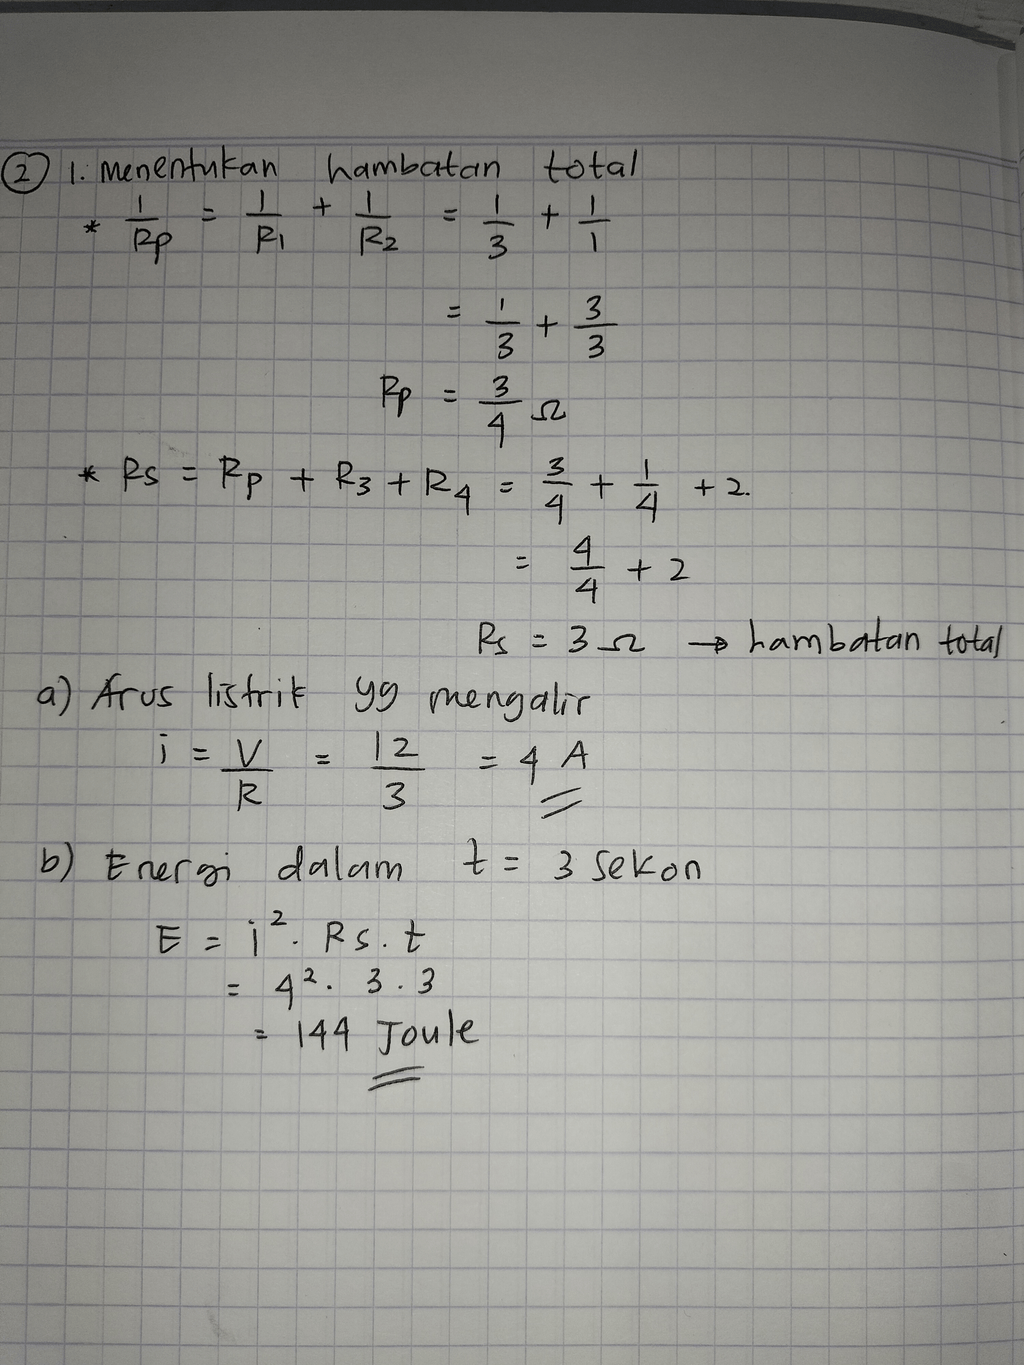 ② 1. Menentukan hambatan total
* 1/Rp = 1/R1 + 1/R2 = 1/3 + 1/1
= 1/3 + 3/3
Rp = 3/4 Ω
* Rs = Rp + R3 + R4 = 3/4 + 1/4 + 2.
= 4/4 + 2
Rs = 3 Ω → hambatan total
a) Arus listrik yg mengalir
i = V/R = 12/3 = 4 A
b) Energi dalam t = 3 sekon
E = i². Rs. t
= 4². 3. 3
= 144 Joule